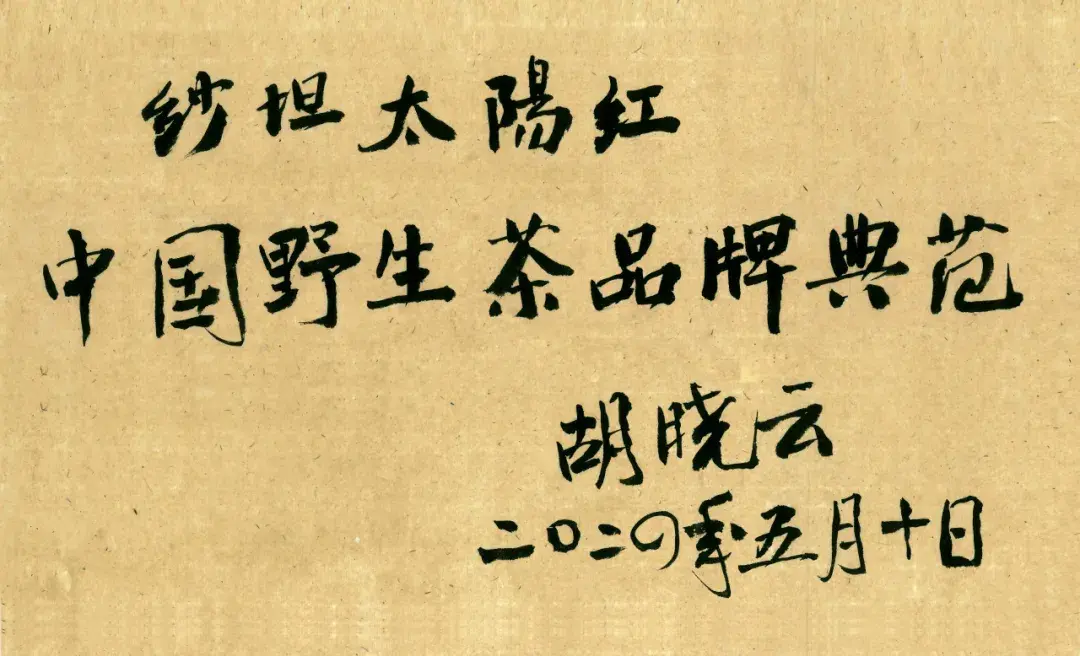 纱坦太陽红
中国野生茶品牌典范
胡晓云
二〇二四年五月十日